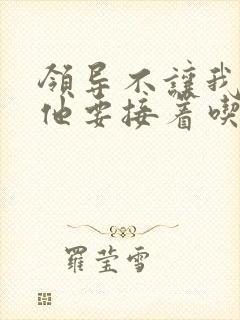 领导不讓我
他要接着喫
羅莹雪